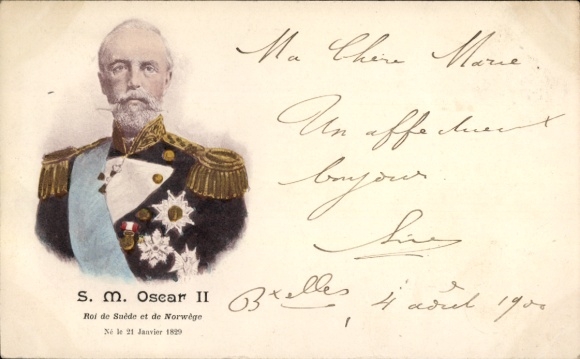 Ma Chère Marie
Un affectueux
bonjour
S. M. Oscar II
Roi de Suède et de Norwège
Né le 21 Janvier 1829
Bxelles, 4 août 1900